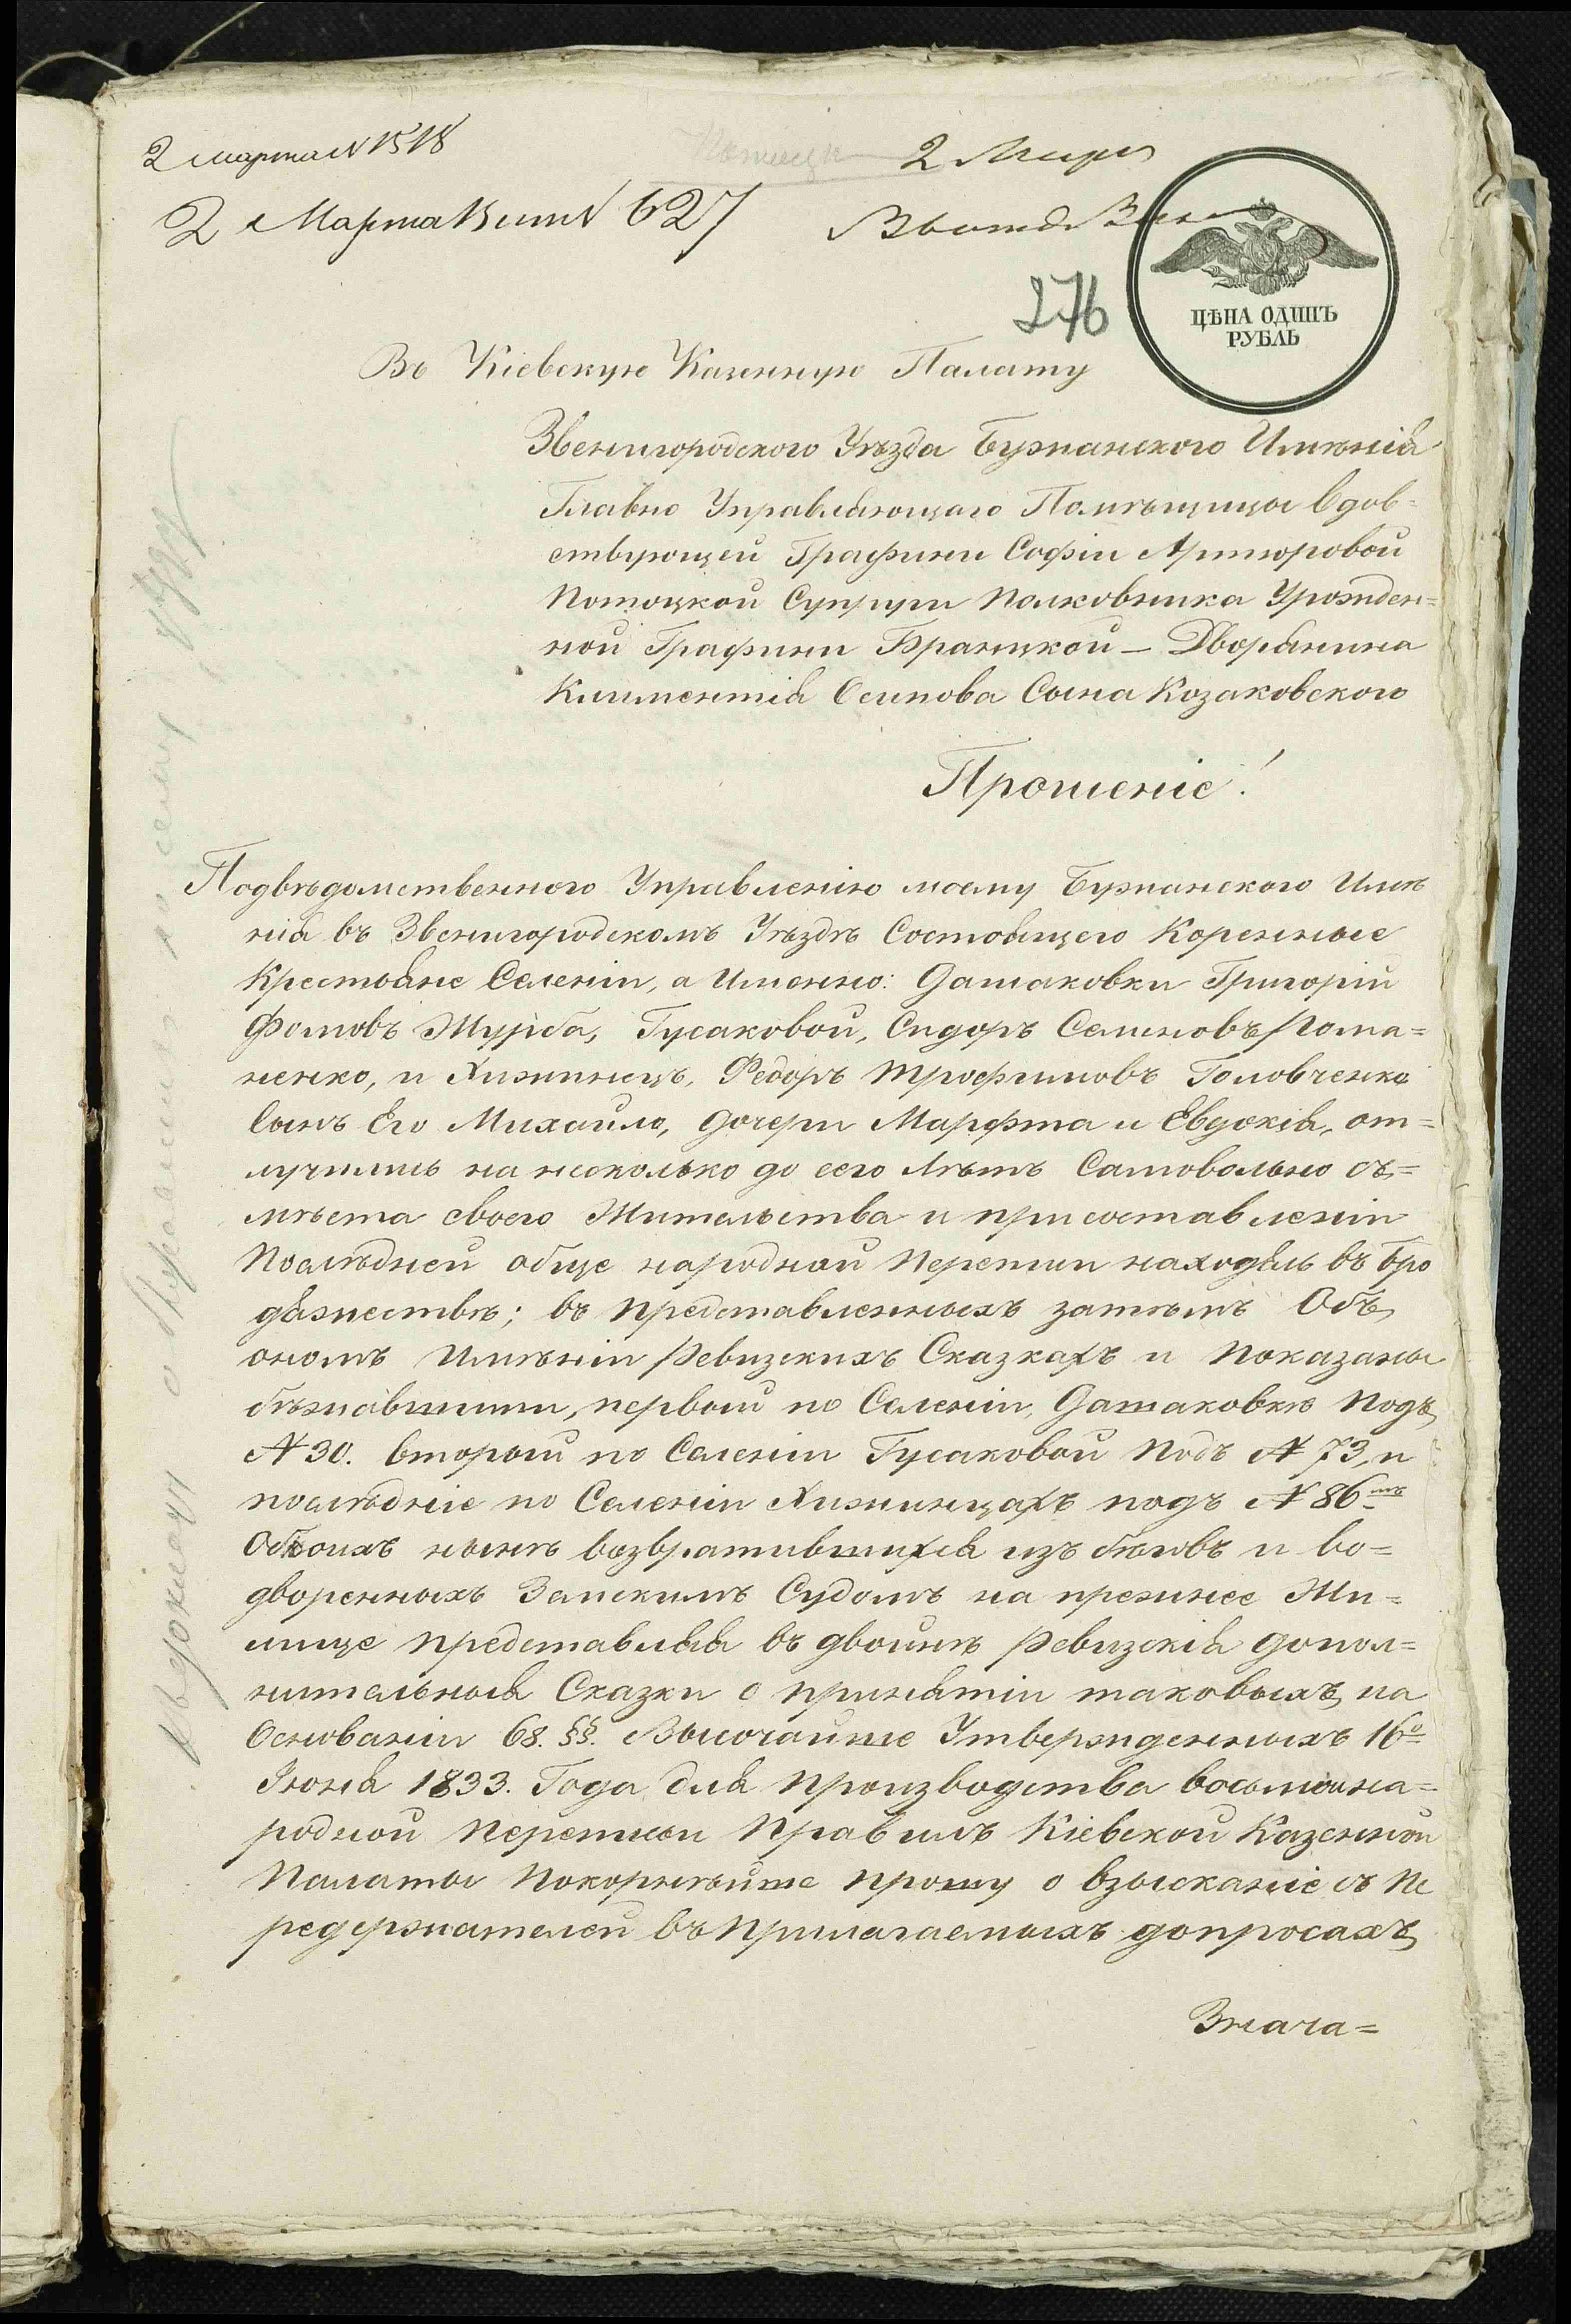 2 марта N 1518
2 Марта Вып N 627
2 Мар
276
ЦѢНА ОДИНЪ
РУБЛЬ
Въ Кіевскую Казенную Палату
Звенигородского Уѣзда Бужанского Имѣнія
Главно Управляющаго Помѣщицы вдов=
ствующей Графини Софіи Артюровой
Потоцкой Супруги Полковника Урожден=
ной Графини Браницкой — Дворянина
Климентія Осипова Сына Козаковского
Прошеніе!
Подвѣдомственного Управленію моему Бужанского Имѣ
нія въ Звенигородскомъ Уѣздѣ Состоящего Коренные
Крестьяне Селеній, а Именно: Дашаковки Григорій
Фомовъ Журба, Гусаковой, Сидоръ Семеновъ Рома=
ненко, и Хижинецъ, Федоръ Трофимовъ Головченко
Сынъ Его Михайло, дочери Марфта и Евдокія, от=
лучились на несколько до сего Лѣтъ Самовольно съ=
мѣста своего Жительства и при составленіи
Послѣдней обще народной переписи находясь въ Бро
дяжествѣ; въ представленныхъ затѣмъ Объ
ономъ Имѣніи Ревизскихъ Сказкахъ и показаны
бѣжавшими, первый по Селенію, Дашаковкѣ подъ
N 30. вторый по Селенію Гусаковой подъ N 73, и
послѣдніе по Селенію Хижинцахъ подъ N 86мъ
Обоихъ нынѣ возвратившихся изъ бѣговъ и во=
дворенныхъ Земскимъ Судомъ на прежнее Жи=
лище представляя въ двойнѣ Ревизскія допол=
нительныя Сказки о принятіи таковыхъ, на
Основаніи 68. §§. Высочайше Утвержденныхъ 16го
Іюня 1833. Года для производства восьмой на=
родной переписи Правилъ Кіевской Казенной
Палаты Покорнѣйше прошу о взысканіе съ Пе
редержателей въ прилагаемыхъ допросахъ
Знача=